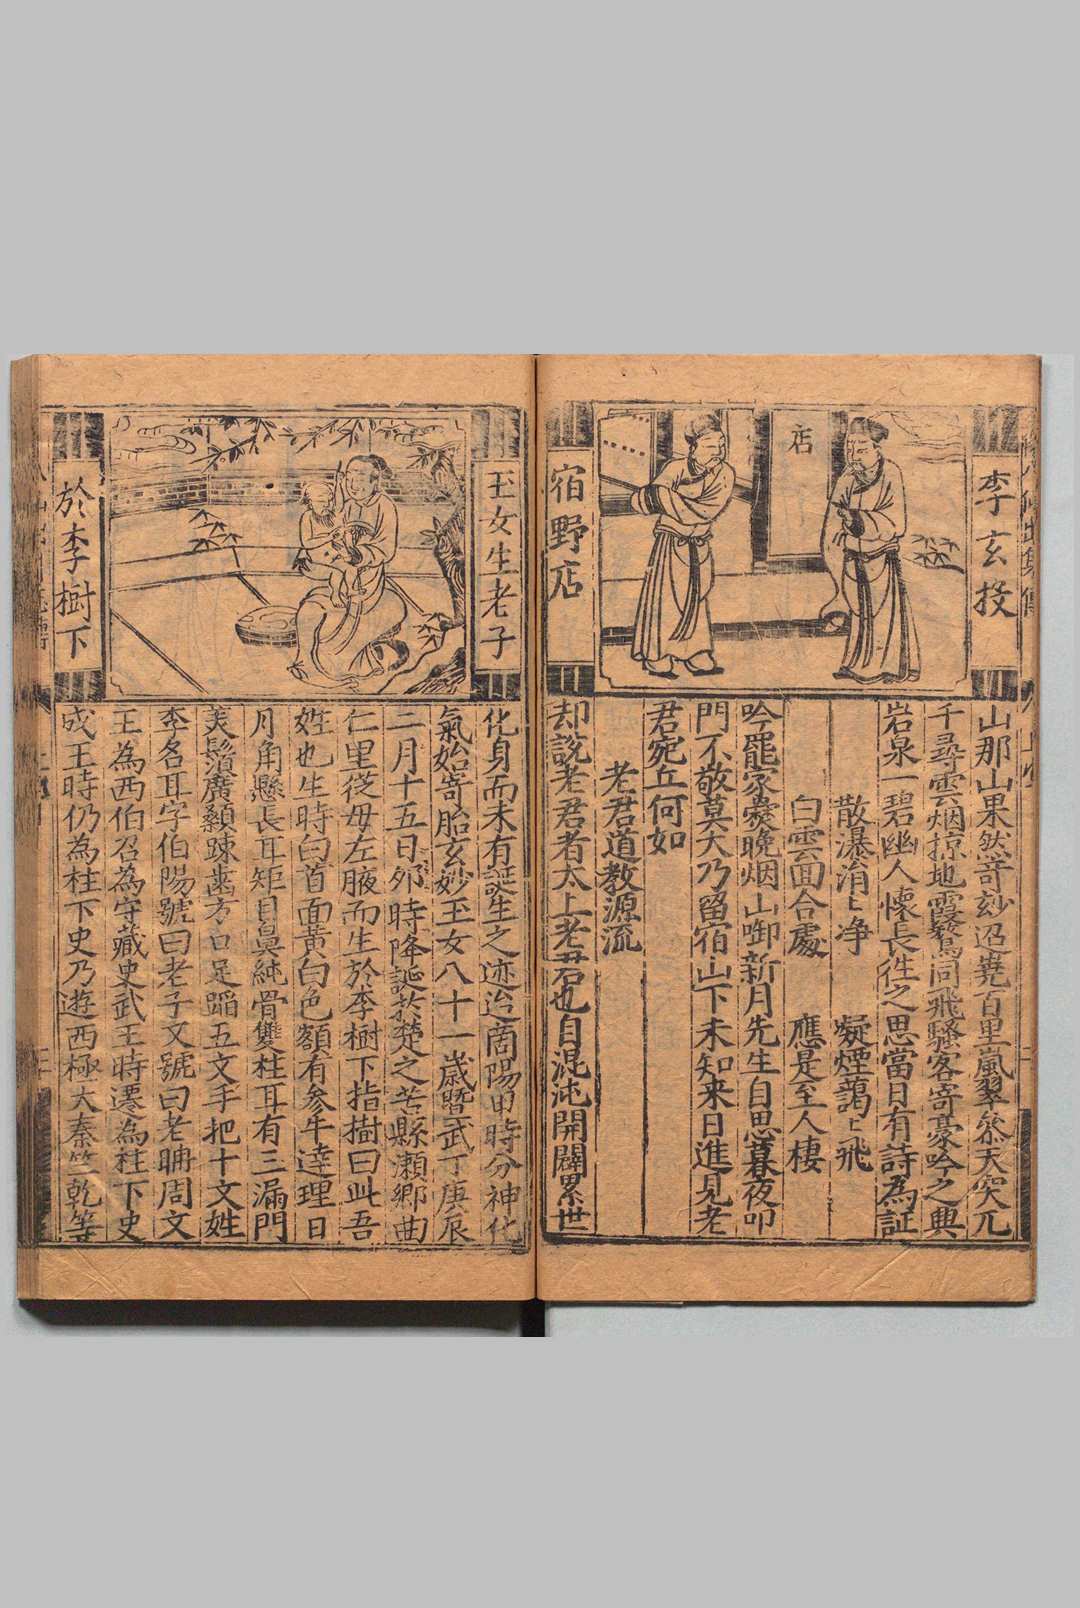 李玄投
宿野店
店
山那山果然奇玅迢嶤百里嵐翠叅天突兀
千尋雲烟掠地霞鶩同飛騷客寄豪吟之興
岩泉一碧幽人懷長往之思當日有詩為証
散瀑涓〻净 凝煙藹〻飛
白雲面合處 應是至人棲
吟罷家爨晚烟山啣新月先生自思暮夜叩
門不敬莫大乃留宿山下未知来日進見老
君宛丘何如
老君道教源流
却說老君者太上老君也自混沌開闢累世
玉女生老子
於李樹下
化身而未有誕生之迹迨啇陽甲時分神化
氣始寄胎玄妙玉女八十一嵗曁武丁庚辰
二月十五日夘時降誕於楚之苦縣瀬鄉曲
仁里從母左腋而生於李樹下指樹曰此吾
姓也生時白首面黃白色額有參牛達理日
月角懸長耳矩目鼻純骨雙柱耳有三漏門
美鬚廣顙踈齒方口足蹈五文手把十文姓
李名耳字伯陽號曰老子又號曰老聃周文
王為西伯召為守藏史武王時遷為柱下史
成王時仍為柱下史乃遊西極大秦竺乾等